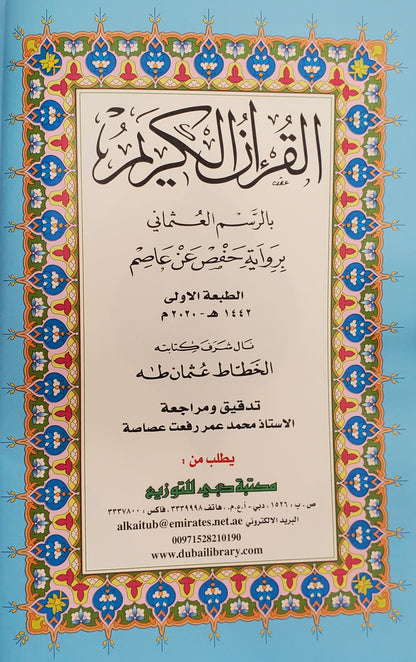 القرءان الكريم
بالرسم العثماني
برواية حفص عن عاصم
الطبعة الاولى
١٤٤٢ هـ - ٢٠٢٠ م
نال شرف كتابته
الخطاط عثمان طه
تدقيق ومراجعة
الاستاذ محمد عمر رفعت عصاصة
يطلب من :
مكتبة دبي للتوزيع
ص . ب : ١٥٢٦ ، دبي - أ . ع . م . ، هاتف ٣٣٣٩٩٩٨ ، فاكس : ٣٣٣٧٨٠٠
البريد الالكتروني alkaitub@emirates.net.ae
00971528210190
www.dubailibrary.com